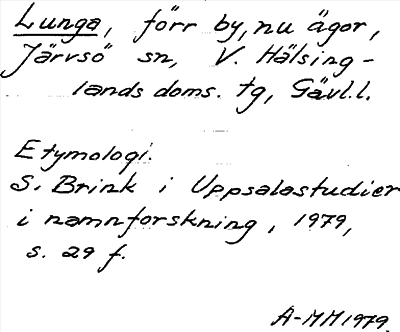 Lunga, förr by, nu ägor,
Järvsö sn, V. Hälsing-
lands doms. tg, Gävl.l.
Etymologi.
S. Brink i Uppsalastudier
i namnforskning, 1979,
s. 29 f.
A-MM 1979.